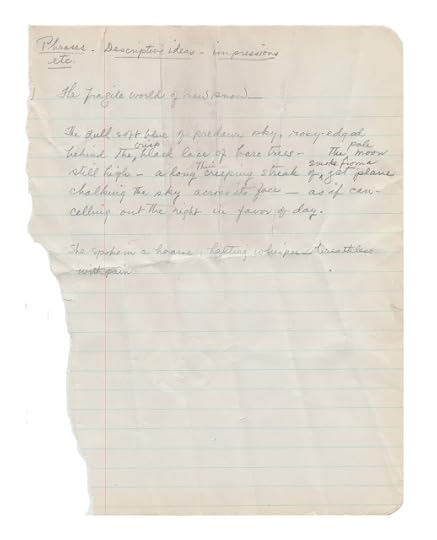 Phrases. Descriptive ideas - impressions
etc.
1 The fragile world of new snow
The dull soft blue of predawn sky, rosy-edged
behind the crisp black lace of bare trees - the pale moon
still high - a long thin creeping streak of smoke from a jet plane
chalking the sky across its face - as if can-
celling out the night in favor of day.
She spoke in a hoarse, halting whisper - breathless
with pain